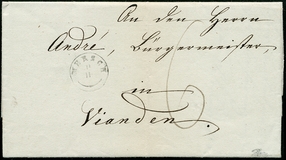 An den Herrn
André, Bürgermeister,
MERSCH
in
Vianden.